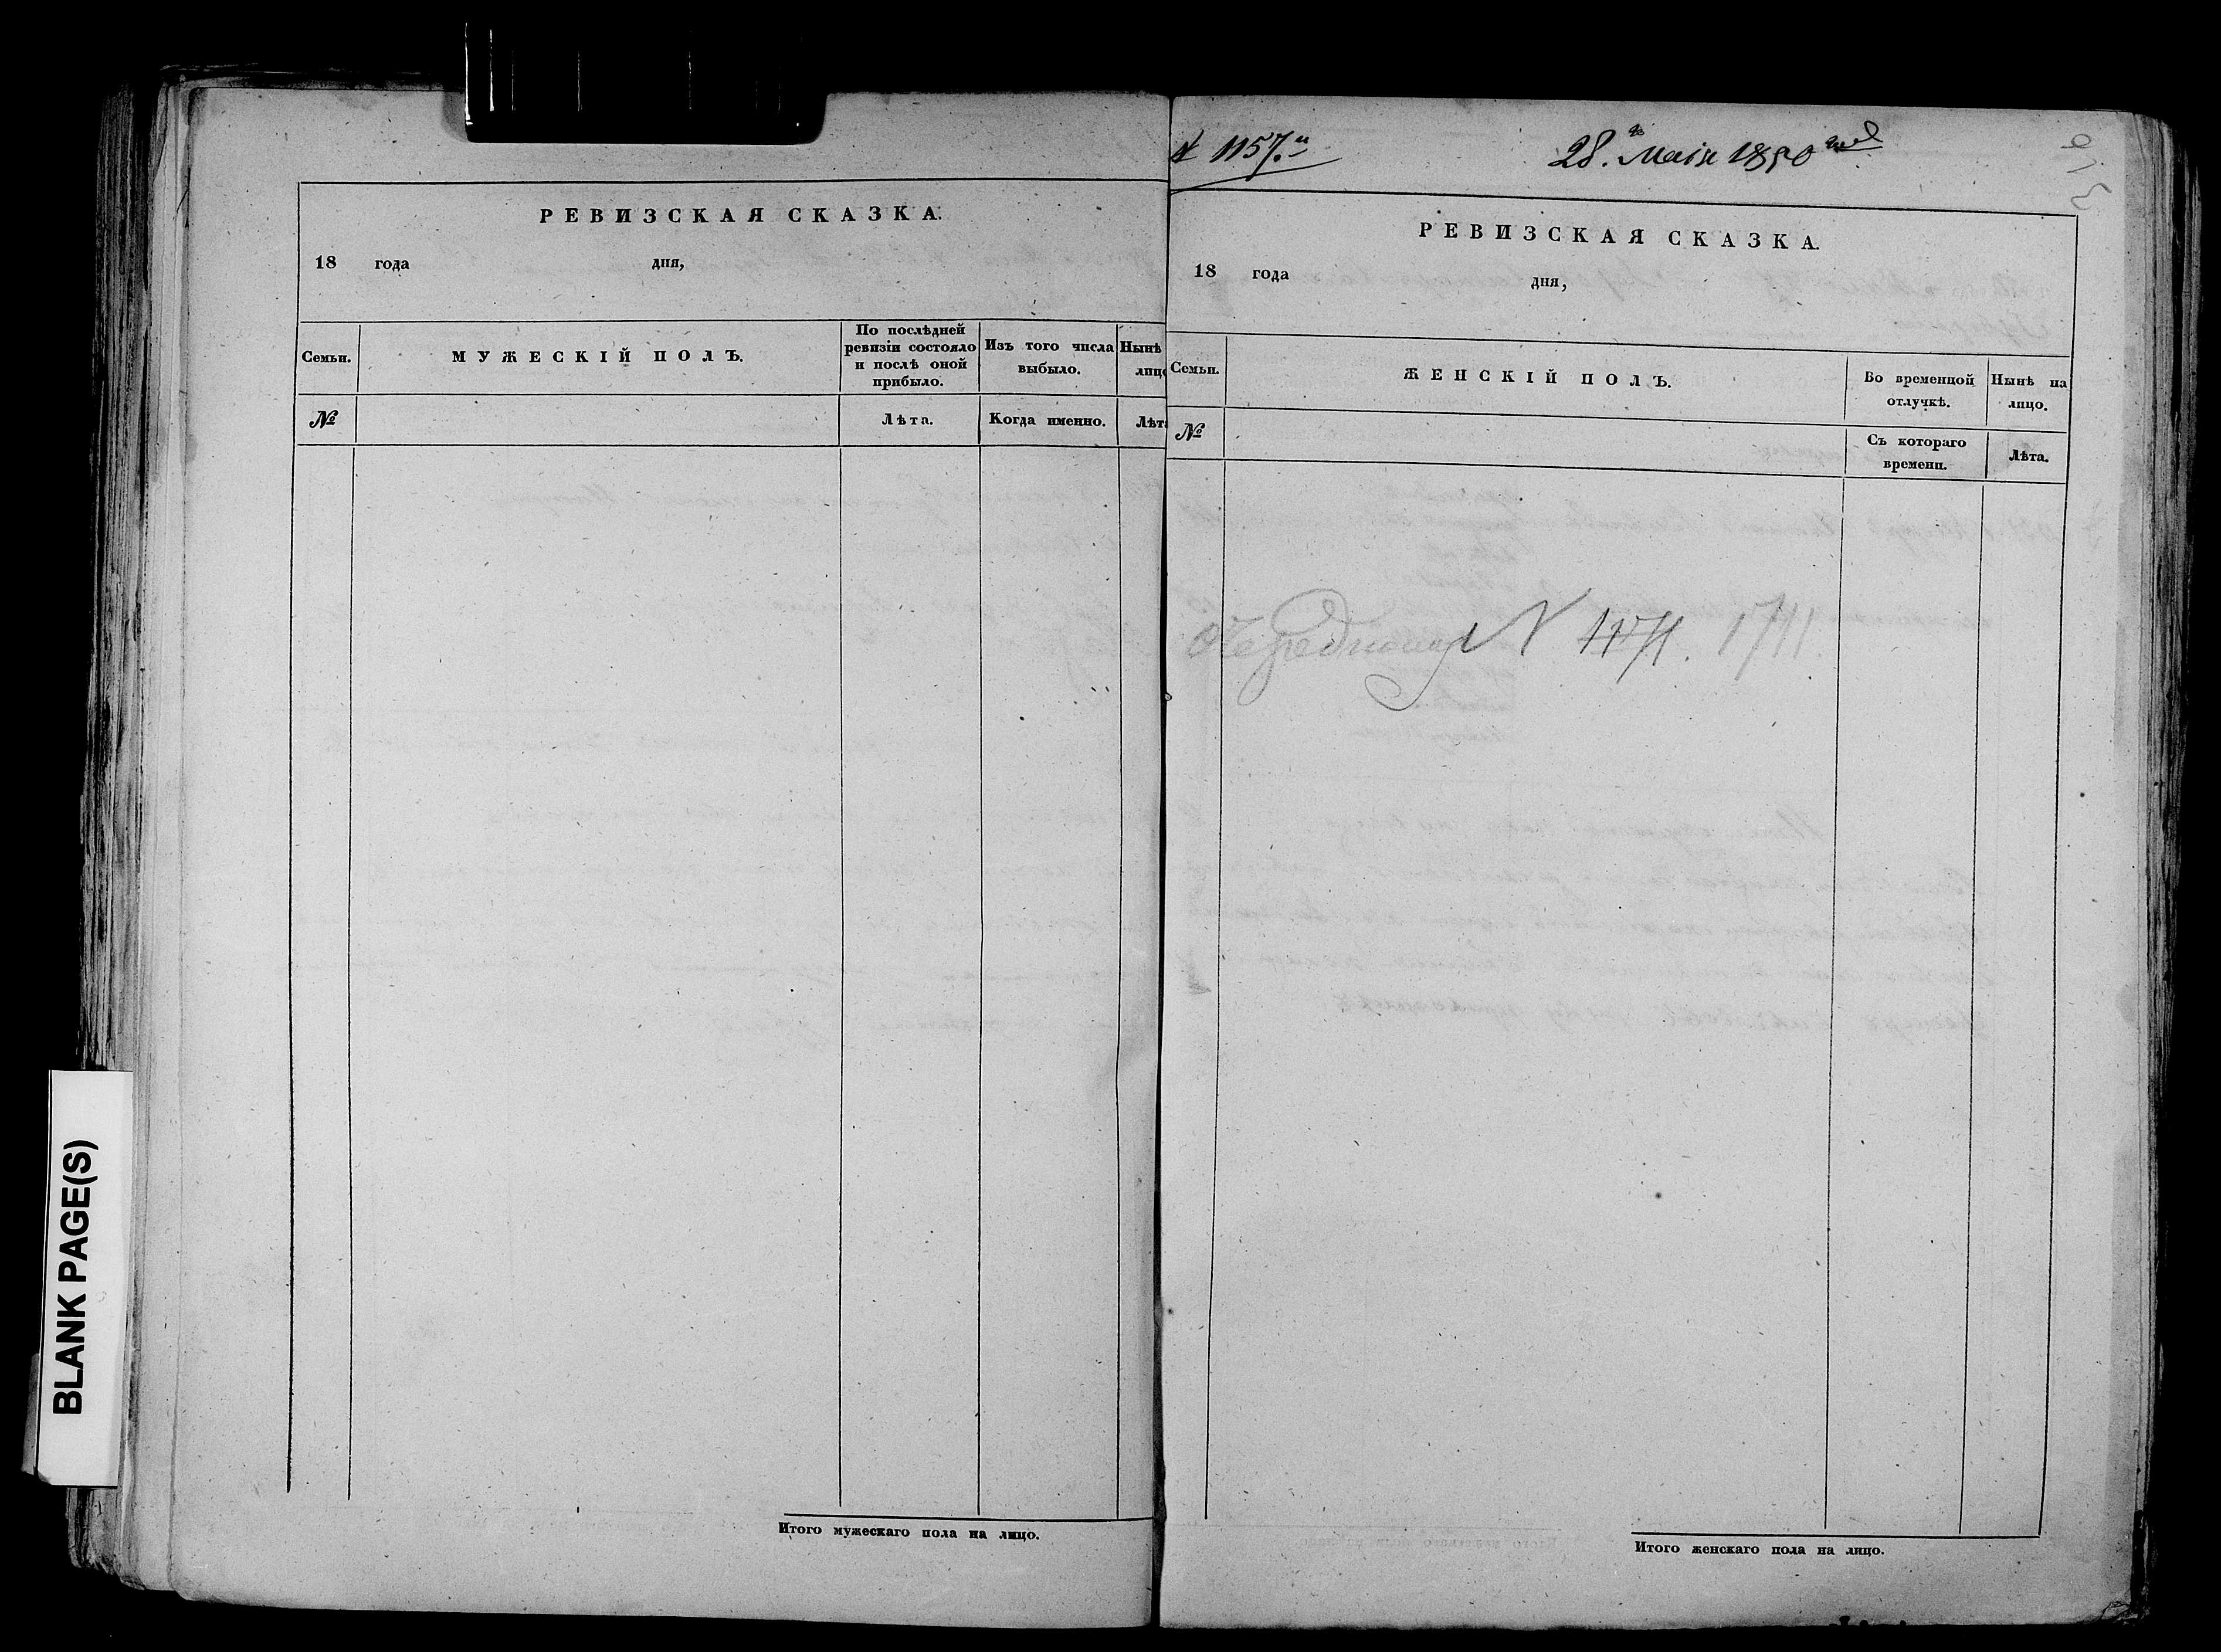 BLANK PAGE(S)
РЕВИЗСКАЯ СКАЗКА.
18 года дня,
Семьи.
МУЖЕСКІЙ ПОЛЪ.
По послѣдней
ревизіи состояло
и послѣ оной
прибыло.
Изъ того числа
выбыло.
Нынѣ
лицо
№
Лѣта.
Когда именно.
Лѣта
Итого мужескаго пола на лицо.
№ 1157.й
28.го Маія 1850 года
РЕВИЗСКАЯ СКАЗКА.
18 года дня,
Семьи.
ЖЕНСКІЙ ПОЛЪ.
Во временной
отлучкѣ.
Нынѣ на
лицо.
№
Съ котораго
времени.
Лѣта.
N 1171. 1711
Итого женскаго пола на лицо.